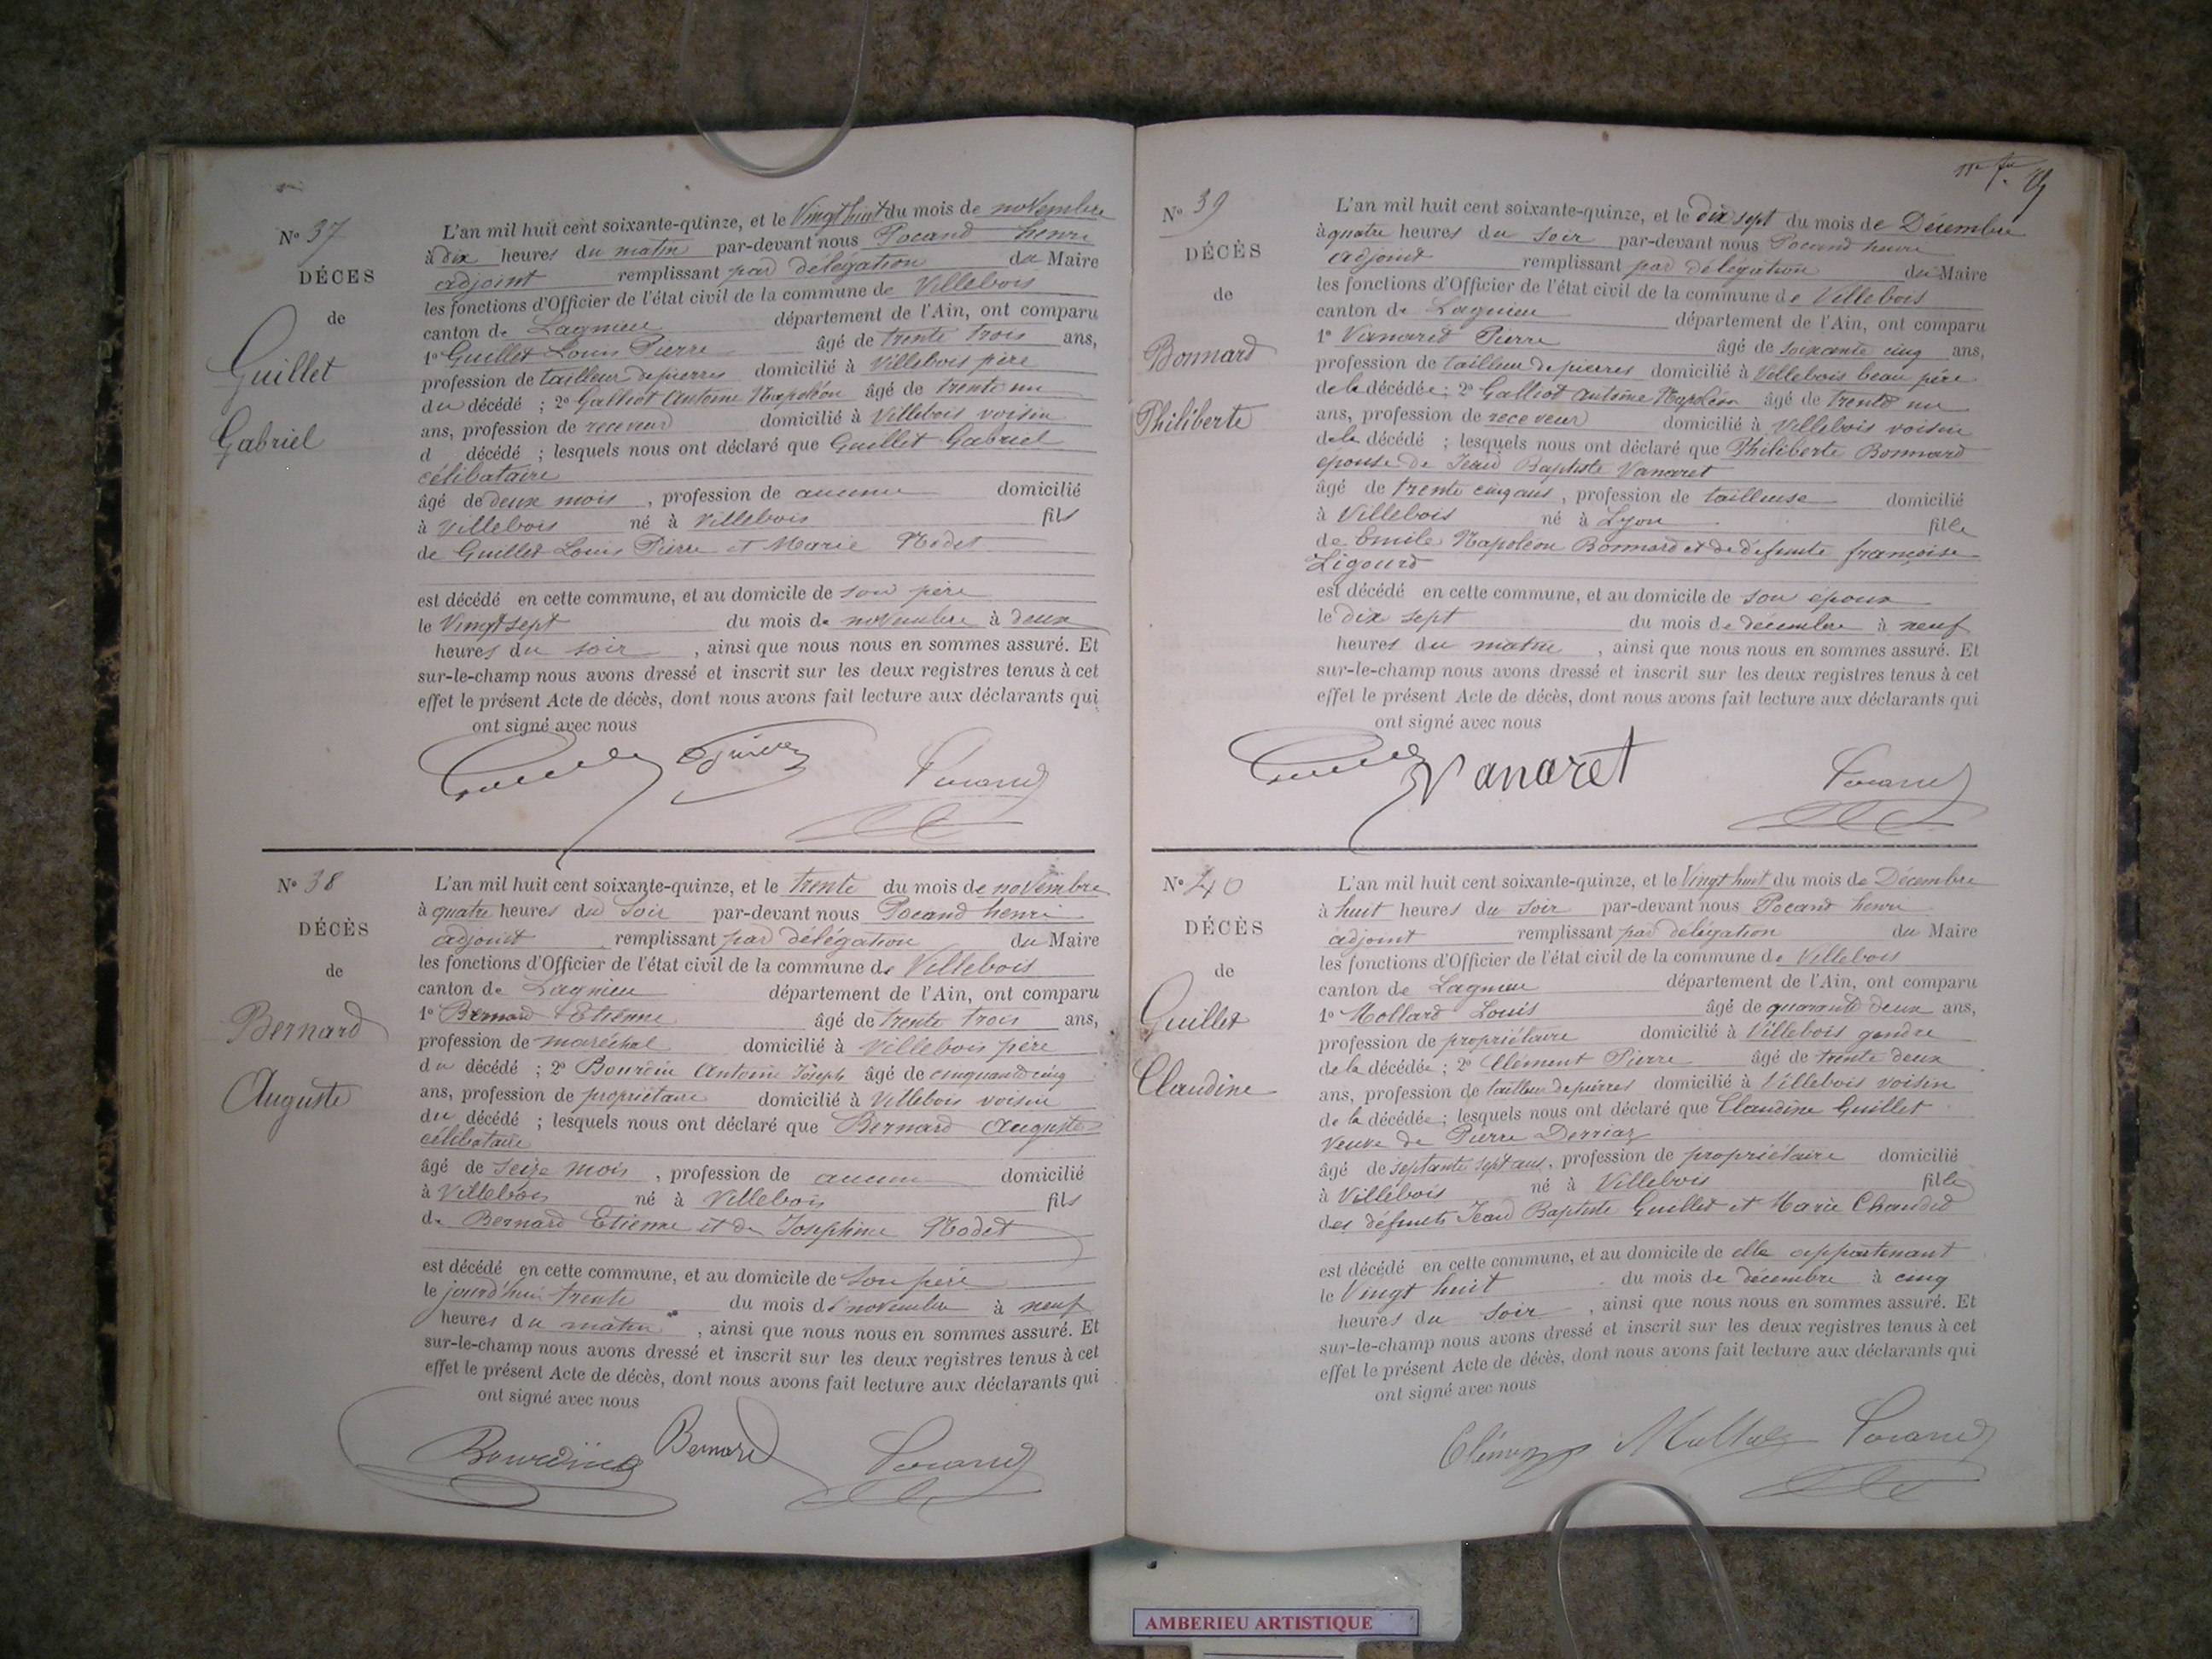 Nº 37
DÉCES
de
Guillet
Gabriel
L'an mil huit cent soixante-quinze, et le Vingt huit du mois de novembre
à dix heures du matin par-devant nous Pocand henri
adjoint remplissant par délégation du Maire
les fonctions d'Officier de l'état civil de la commune de Villebois
canton de Lagnieu département de l'Ain, ont comparu
1º Guillet Louis Pierre âgé de trente trois ans,
profession de tailleur de pierres domicilié à Villebois père
du décédé ; 2º Galliot Antoine Napoléon âgé de trente un
ans, profession de receveur domicilié à Villebois voisin
d décédé ; lesquels nous ont déclaré que Guillet Gabriel
célibataire
âgé de deux mois , profession de aucune domicilié
à Villebois né à Villebois fils
de Guillet Louis Pierre et Marie Rodet
est décédé en cette commune, et au domicile de son père
le Vingt sept du mois de novembre à deux
heures du soir , ainsi que nous nous en sommes assuré. Et
sur-le-champ nous avons dressé et inscrit sur les deux registres tenus à cet
effet le présent Acte de décès, dont nous avons fait lecture aux déclarants qui
ont signé avec nous
Pocand
Nº 38
DÉCÈS
de
Bernard
Auguste
L'an mil huit cent soixante-quinze, et le trente du mois de novembre
à quatre heures du Soir par-devant nous Pocand henri
adjoint remplissant par délégation du Maire
les fonctions d'Officier de l'état civil de la commune de Villebois
canton de Lagnieu département de l'Ain, ont comparu
1º Bernard Etienne âgé de trente trois ans,
profession de maréchal domicilié à Villebois père
du décédé ; 2º Bourdin Antoine Joseph âgé de cinquante cinq
ans, profession de propriétaire domicilié à Villebois voisin
du décédé ; lesquels nous ont déclaré que Bernard Auguste
célibataire
âgé de seize mois , profession de aucune domicilié
à Villebois né à Villebois fils
de Bernard Etienne et de Joséphine Rodet
est décédé en cette commune, et au domicile de son père
le jourd'hui trente du mois de novembre à neuf
heures du matin , ainsi que nous nous en sommes assuré. Et
sur-le-champ nous avons dressé et inscrit sur les deux registres tenus à cet
effet le présent Acte de décès, dont nous avons fait lecture aux déclarants qui
ont signé avec nous
Bernard Pocand
Nº 39
DÉCÈS
de
Bonnard
Philiberte
L'an mil huit cent soixante-quinze, et le dix sept du mois de Décembre
à quatre heures du soir par-devant nous Pocand henri
adjoint remplissant par délégation du Maire
les fonctions d'Officier de l'état civil de la commune de Villebois
canton de Lagnieu département de l'Ain, ont comparu
1º Vanaret Pierre âgé de soixante cinq ans,
profession de tailleur de pierres domicilié à Villebois beau père
de la décédée ; 2º Galliot Antoine Napoléon âgé de trente un
ans, profession de receveur domicilié à Villebois voisin
de la décédé ; lesquels nous ont déclaré que Philiberte Bonnard
epouse de Jean Baptiste Vanaret
âgé de trente cinq ans , profession de tailleuse domicilié
à Villebois né à Lyon fille
de Emile Napoléon Bonnard et de défunte françoise
Ligourd
est décédé en cette commune, et au domicile de son époux
le dix sept du mois de décembre à neuf
heures du matin , ainsi que nous nous en sommes assuré. Et
sur-le-champ nous avons dressé et inscrit sur les deux registres tenus à cet
effet le présent Acte de décès, dont nous avons fait lecture aux déclarants qui
ont signé avec nous
Vanaret Pocand
Nº 40
DÉCÈS
de
Guillet
Claudine
L'an mil huit cent soixante-quinze, et le Vingt huit du mois de Décembre
à huit heures du soir par-devant nous Pocand henri
adjoint remplissant par délégation du Maire
les fonctions d'Officier de l'état civil de la commune de Villebois
canton de Lagnieu département de l'Ain, ont comparu
1º Mollard Louis âgé de quarante deux ans,
profession de propriétaire domicilié à Villebois gendre
de la décédée ; 2º Clément Pierre âgé de trente deux
ans, profession de tailleur de pierres domicilié à Villebois voisin
de la décédée ; lesquels nous ont déclaré que Claudine Guillet
Veuve de Pierre Derriaz
âgé de septante sept ans, profession de propriétaire domicilié
à Villebois né à Villebois fille
des défunts Jean Baptiste Guillet et Marie Chaudet
est décédé en cette commune, et au domicile de elle appartenant
le Vingt huit du mois de décembre à cinq
heures du soir , ainsi que nous nous en sommes assuré. Et
sur-le-champ nous avons dressé et inscrit sur les deux registres tenus à cet
effet le présent Acte de décès, dont nous avons fait lecture aux déclarants qui
ont signé avec nous
Pocand
AMBERIEU ARTISTIQUE